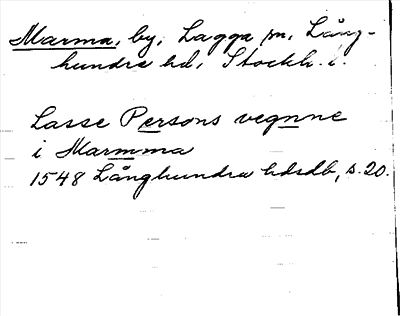 Marma, by, Lagga sn, Lång-
hundra hd, Stockh. l.
Lasse Persons vegnne
i Marmma
1548 Långhundra hdsdb, s. 20.